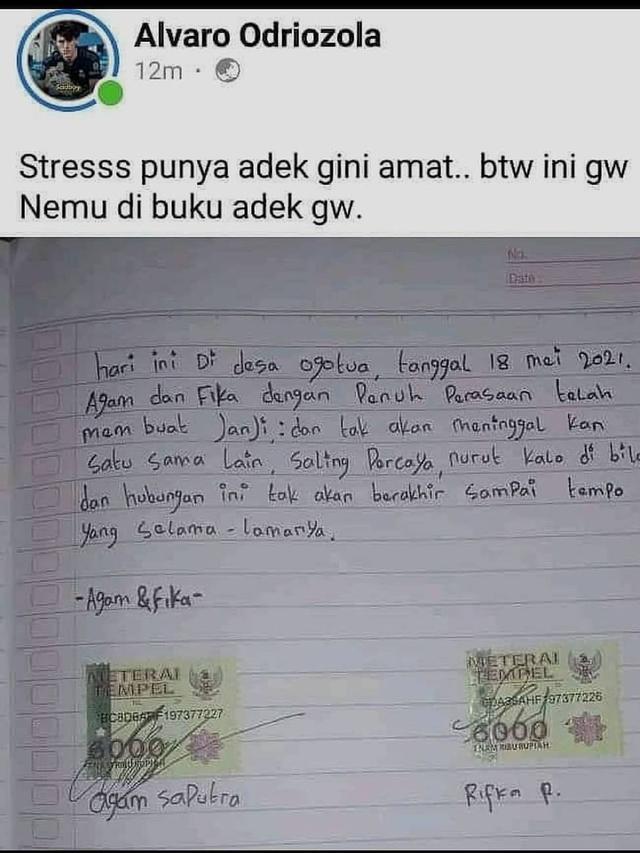 Alvaro Odriozola
12m ·
Stresss punya adek gini amat.. btw ini gw
Nemu di buku adek gw.
No.
Date :
hari ini Di desa ogotua, tanggal 18 mei 2021.
Agam dan Fika dengan Penuh Perasaan telah
mem buat Janji : dan tak akan meninggal kan
satu sama lain, saling Percaya, nurut kalo di bila
dan hubungan ini tak akan berakhir samPai tempo
yang selama - lamanya.
-Agam & Fika-
METERAI
TEMPEL
197377227
6000
ENAM RIBU RUPIAH
agam saPutra
METERAI
TEMPEL
197377226
6000
ENAM RIBU RUPIAH
Rifka P.